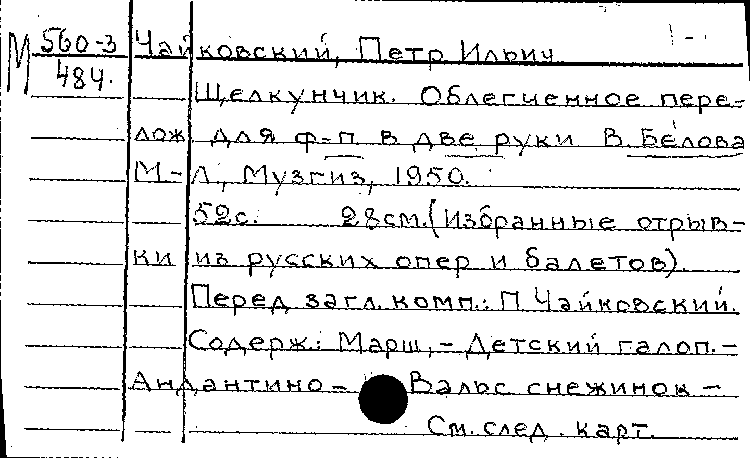 М 560-3 Чайковский, Петр Ильич
484.
Щелкунчик. Облегченное пере-
лож для ф-п. в две руки В. Белова
М-Л, Музгиз, 1950.
52с. 28см. (Избранные отрыв-
ки из русских опер и балетов).
Перед загл. комп.: П Чайковский.
Содерж.: Марш, - Детский галоп. -
Андантино - Вальс снежинок -
См. след. карт.